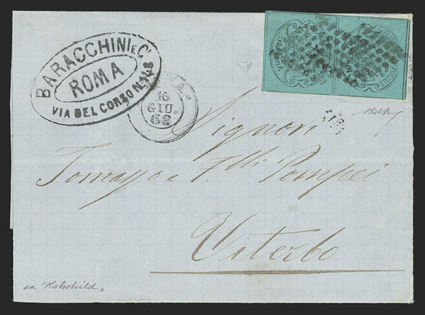 BARACCHINI E C.
ROMA
VIA DEL CORSO N. 148
16
GIU.
68
Signori
Tommaso e F.lli Pompei
Viterbo
ex Rothschild.